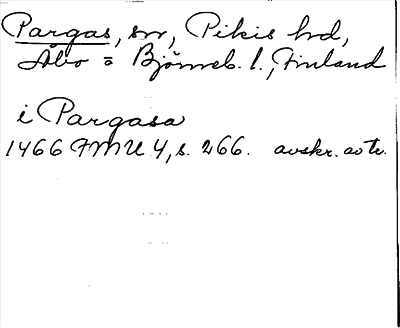 Pargas, sn, Pikis hrd,
Åbo o Björneb. l., Finland
i Pargasa
1466 FMU 4, s. 266. avskr. av tr.